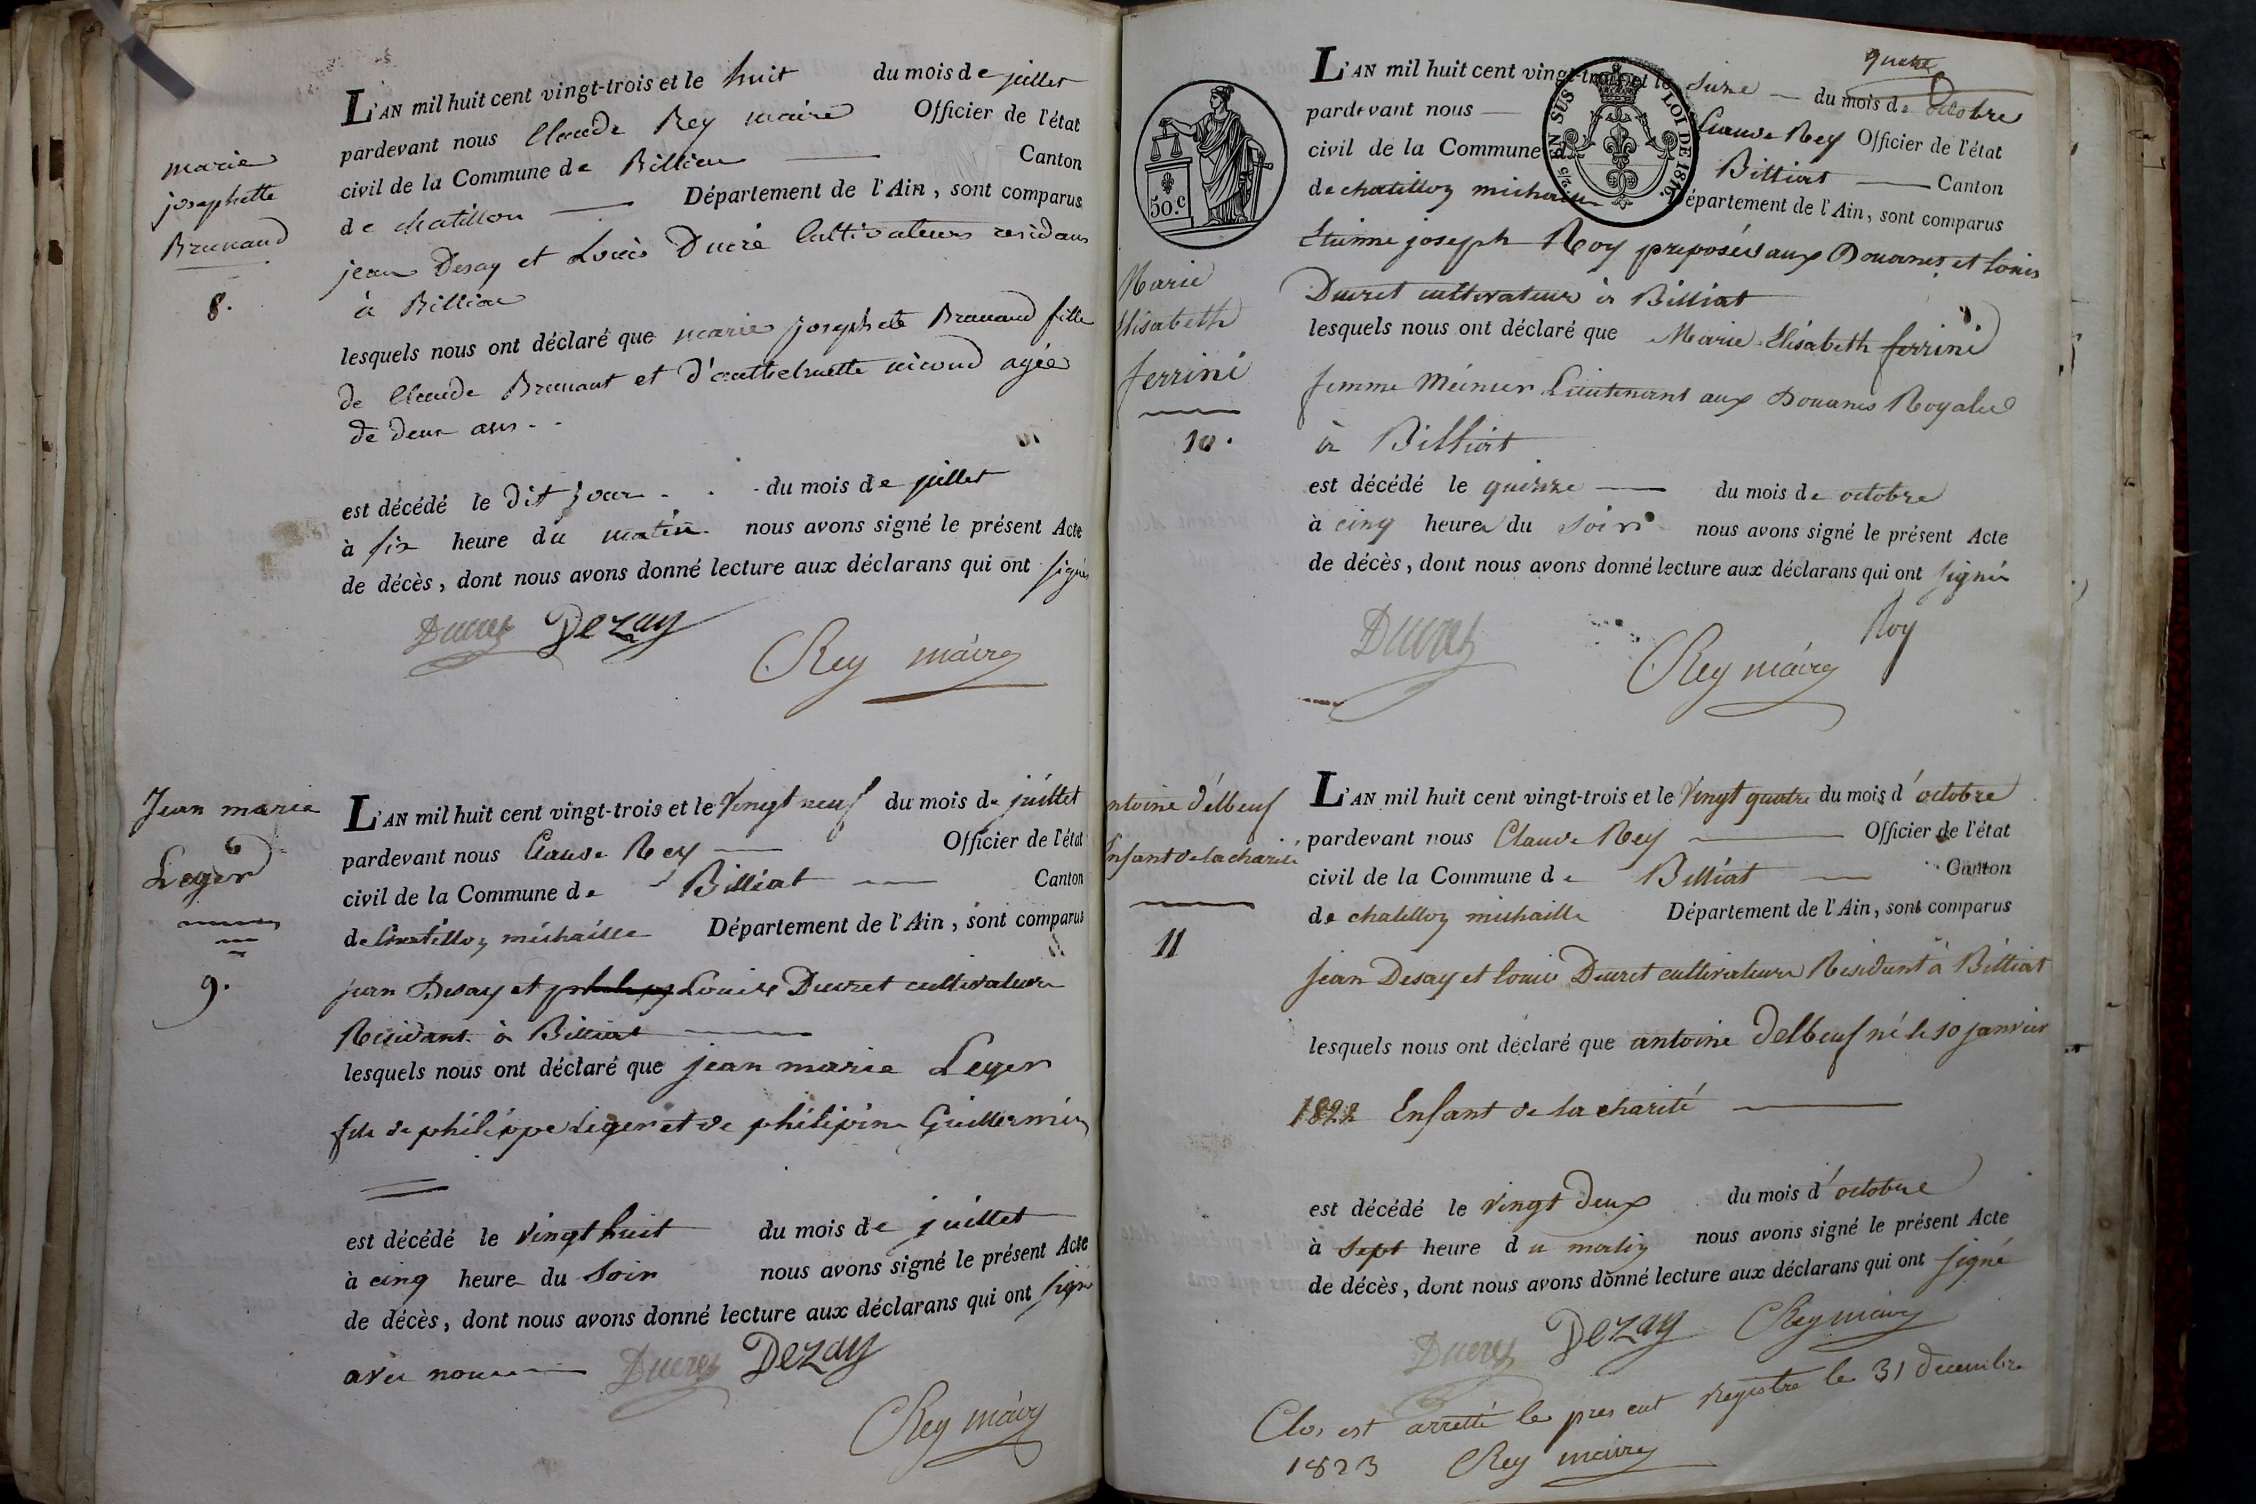 marie
josephette
Brunaud
8.
L'AN mil huit cent vingt-trois et le huit du mois de juillet
pardevant nous Claude Rey maire Officier de l'état
civil de la Commune de Billiat Canton
de chatillon Département de l'Ain, sont comparus
jean Desay et Louis Ducré Cultivateurs residans
à Billiat
lesquels nous ont déclaré que marie josephete Brunaud fille
de Claude Brunaut et d'anthelmette nicoud agée
de deux ans - -
est décédé le dit jour du mois de juillet
à six heure du matin nous avons signé le présent Acte
de décès, dont nous avons donné lecture aux déclarans qui ont signés
Ducret Dezay
Rey maire
Jean marie
Leger
9.
L'AN mil huit cent vingt-trois et le Vingt neuf du mois de juillet
pardevant nous Claude Rey Officier de l'état
civil de la Commune de Billiat Canton
de Chatillon michaille Département de l'Ain, sont comparus
jean Desay et Louis Ducret cultivateurs
Residant à Billiat
lesquels nous ont déclaré que jean marie Leger
fils de philippe Leger et de philipine Guillermin
est décédé le vingt huit du mois de juillet
à cinq heure du soir nous avons signé le présent Acte
de décès, dont nous avons donné lecture aux déclarans qui ont signé
avec nous Ducret Dezay
Rey maire
50.c
EN SUS LOI DE 1816.
Marie
Elisabeth
ferrini
10.
L'AN mil huit cent vingt-trois et le seize du mois de octobre
pardevant nous Claude Rey Officier de l'état
civil de la Commune de Billiat Canton
de chatillon michaille Département de l'Ain, sont comparus
Etienne joseph Roy preposé aux Douanes et louis
Ducret cultivateur à Billiat
lesquels nous ont déclaré que Marie Elisabeth ferrini
femme Meinier Lieutenant aux Douanes Royales
à Billiat
est décédé le quinze du mois de octobre
à cinq heures du soir nous avons signé le présent Acte
de décès, dont nous avons donné lecture aux déclarans qui ont signé
Roy
Ducret
Rey maire
antoine d'élbeuf
Enfant de la charité
11
L'AN mil huit cent vingt-trois et le Vingt quatre du mois d'octobre
pardevant nous Claude Rey Officier de l'état
civil de la Commune de Billiat Canton
de chatillon michaille Département de l'Ain, sont comparus
jean Desay et louis Ducret cultivateurs Residant à Billiat
lesquels nous ont déclaré que antoine delbeuf né le 10 janvier
1822 Enfant de la charité
est décédé le vingt deux du mois d'octobre
à sept heure du matin nous avons signé le présent Acte
de décès, dont nous avons donné lecture aux déclarans qui ont signé
Ducret Dezay Rey maire
Clos est arretté le present registre le 31 decembre
1823 Rey maire